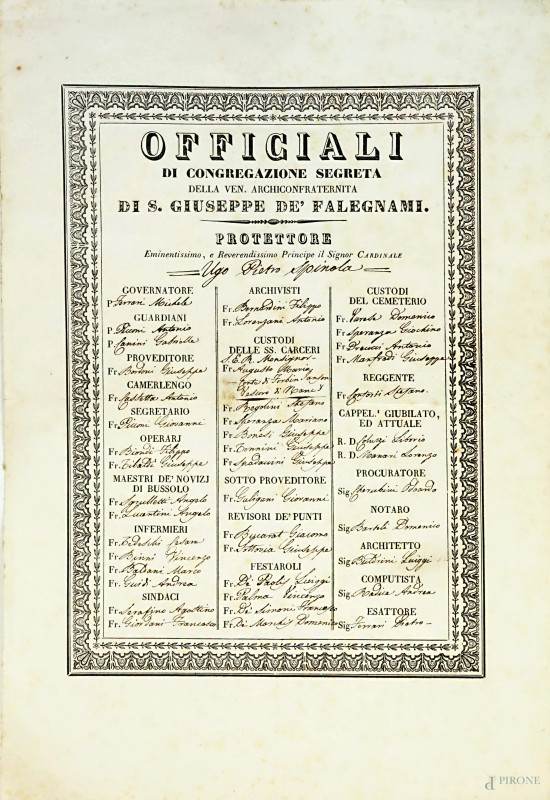 OFFICIALI
DI CONGREGAZIONE SEGRETA
DELLA VEN. ARCHICONFRATERNITA
DI S. GIUSEPPE DE' FALEGNAMI.
PROTETTORE
Eminentissimo, e Reverendissimo Principe il Signor CARDINALE
Ugo Pietro Spinola
GOVERNATORE
P. Ferrari Michele
GUARDIANI
P. Riconi Antonio
P. Canini Gabriele
PROVEDITORE
Fr. Bordoni Giuseppe
CAMERLENGO
Fr. Antonio
SEGRETARIO
Fr. Giovanni
OPERARJ
Fr. Biondi Filippo
Fr. Tibaldi Giuseppe
MAESTRI DE' NOVIZJ
DI BUSSOLO
Fr. Angelo
Fr. Quantini Angelo
INFERMIERI
Fr. Tedeschi
Fr. Binni Vincenzo
Fr. Balbani Marco
Fr. Guidi Andrea
SINDACI
Fr. Serafino Agostino
Fr. Giordani Francesco
ARCHIVISTI
Fr. Bernardini Filippo
Fr. Lorenzani Antonio
CUSTODI
DELLE SS. CARCERI
S. E. R. Monsignor
Fr. Augusto Mario
Conte di Forbin Janson
Vescovo di Nancì
Fr. Regolini Stefano
Fr. Speranza Mariano
Fr. Bonesi Giuseppe
Fr. Tonnini Giuseppe
Fr. Spadacini Giuseppe
SOTTO PROVEDITORE
Fr. Guligoni Giovanni
REVISORI DE' PUNTI
Fr. Giacomo
Fr. Vittoria Giuseppe
FESTAROLI
Fr. De Paolis Luiggi
Fr. Palma Vincenzo
Fr. De Simoni Francesco
Fr. De Marchis Domenico
CUSTODI
DEL CEMETERIO
Fr. Varese Domenico
Fr. Speranza Giachino
Fr. Antonio
Fr. Manfredi Giuseppe
REGGENTE
Fr. Contorti Stefano
CAPPEL.ⁱ GIUBILATO,
ED ATTUALE
R. D. Coluzzi Liborio
R. D. Manari Lorenzo
PROCURATORE
Sig. Cherubini
NOTARO
Sig. Bartoli Domenico
ARCHITETTO
Sig. Boldrini Luiggi
COMPUTISTA
Sig. Badia Andrea
ESATTORE
Sig. Ferrari Pietro
PIRONE